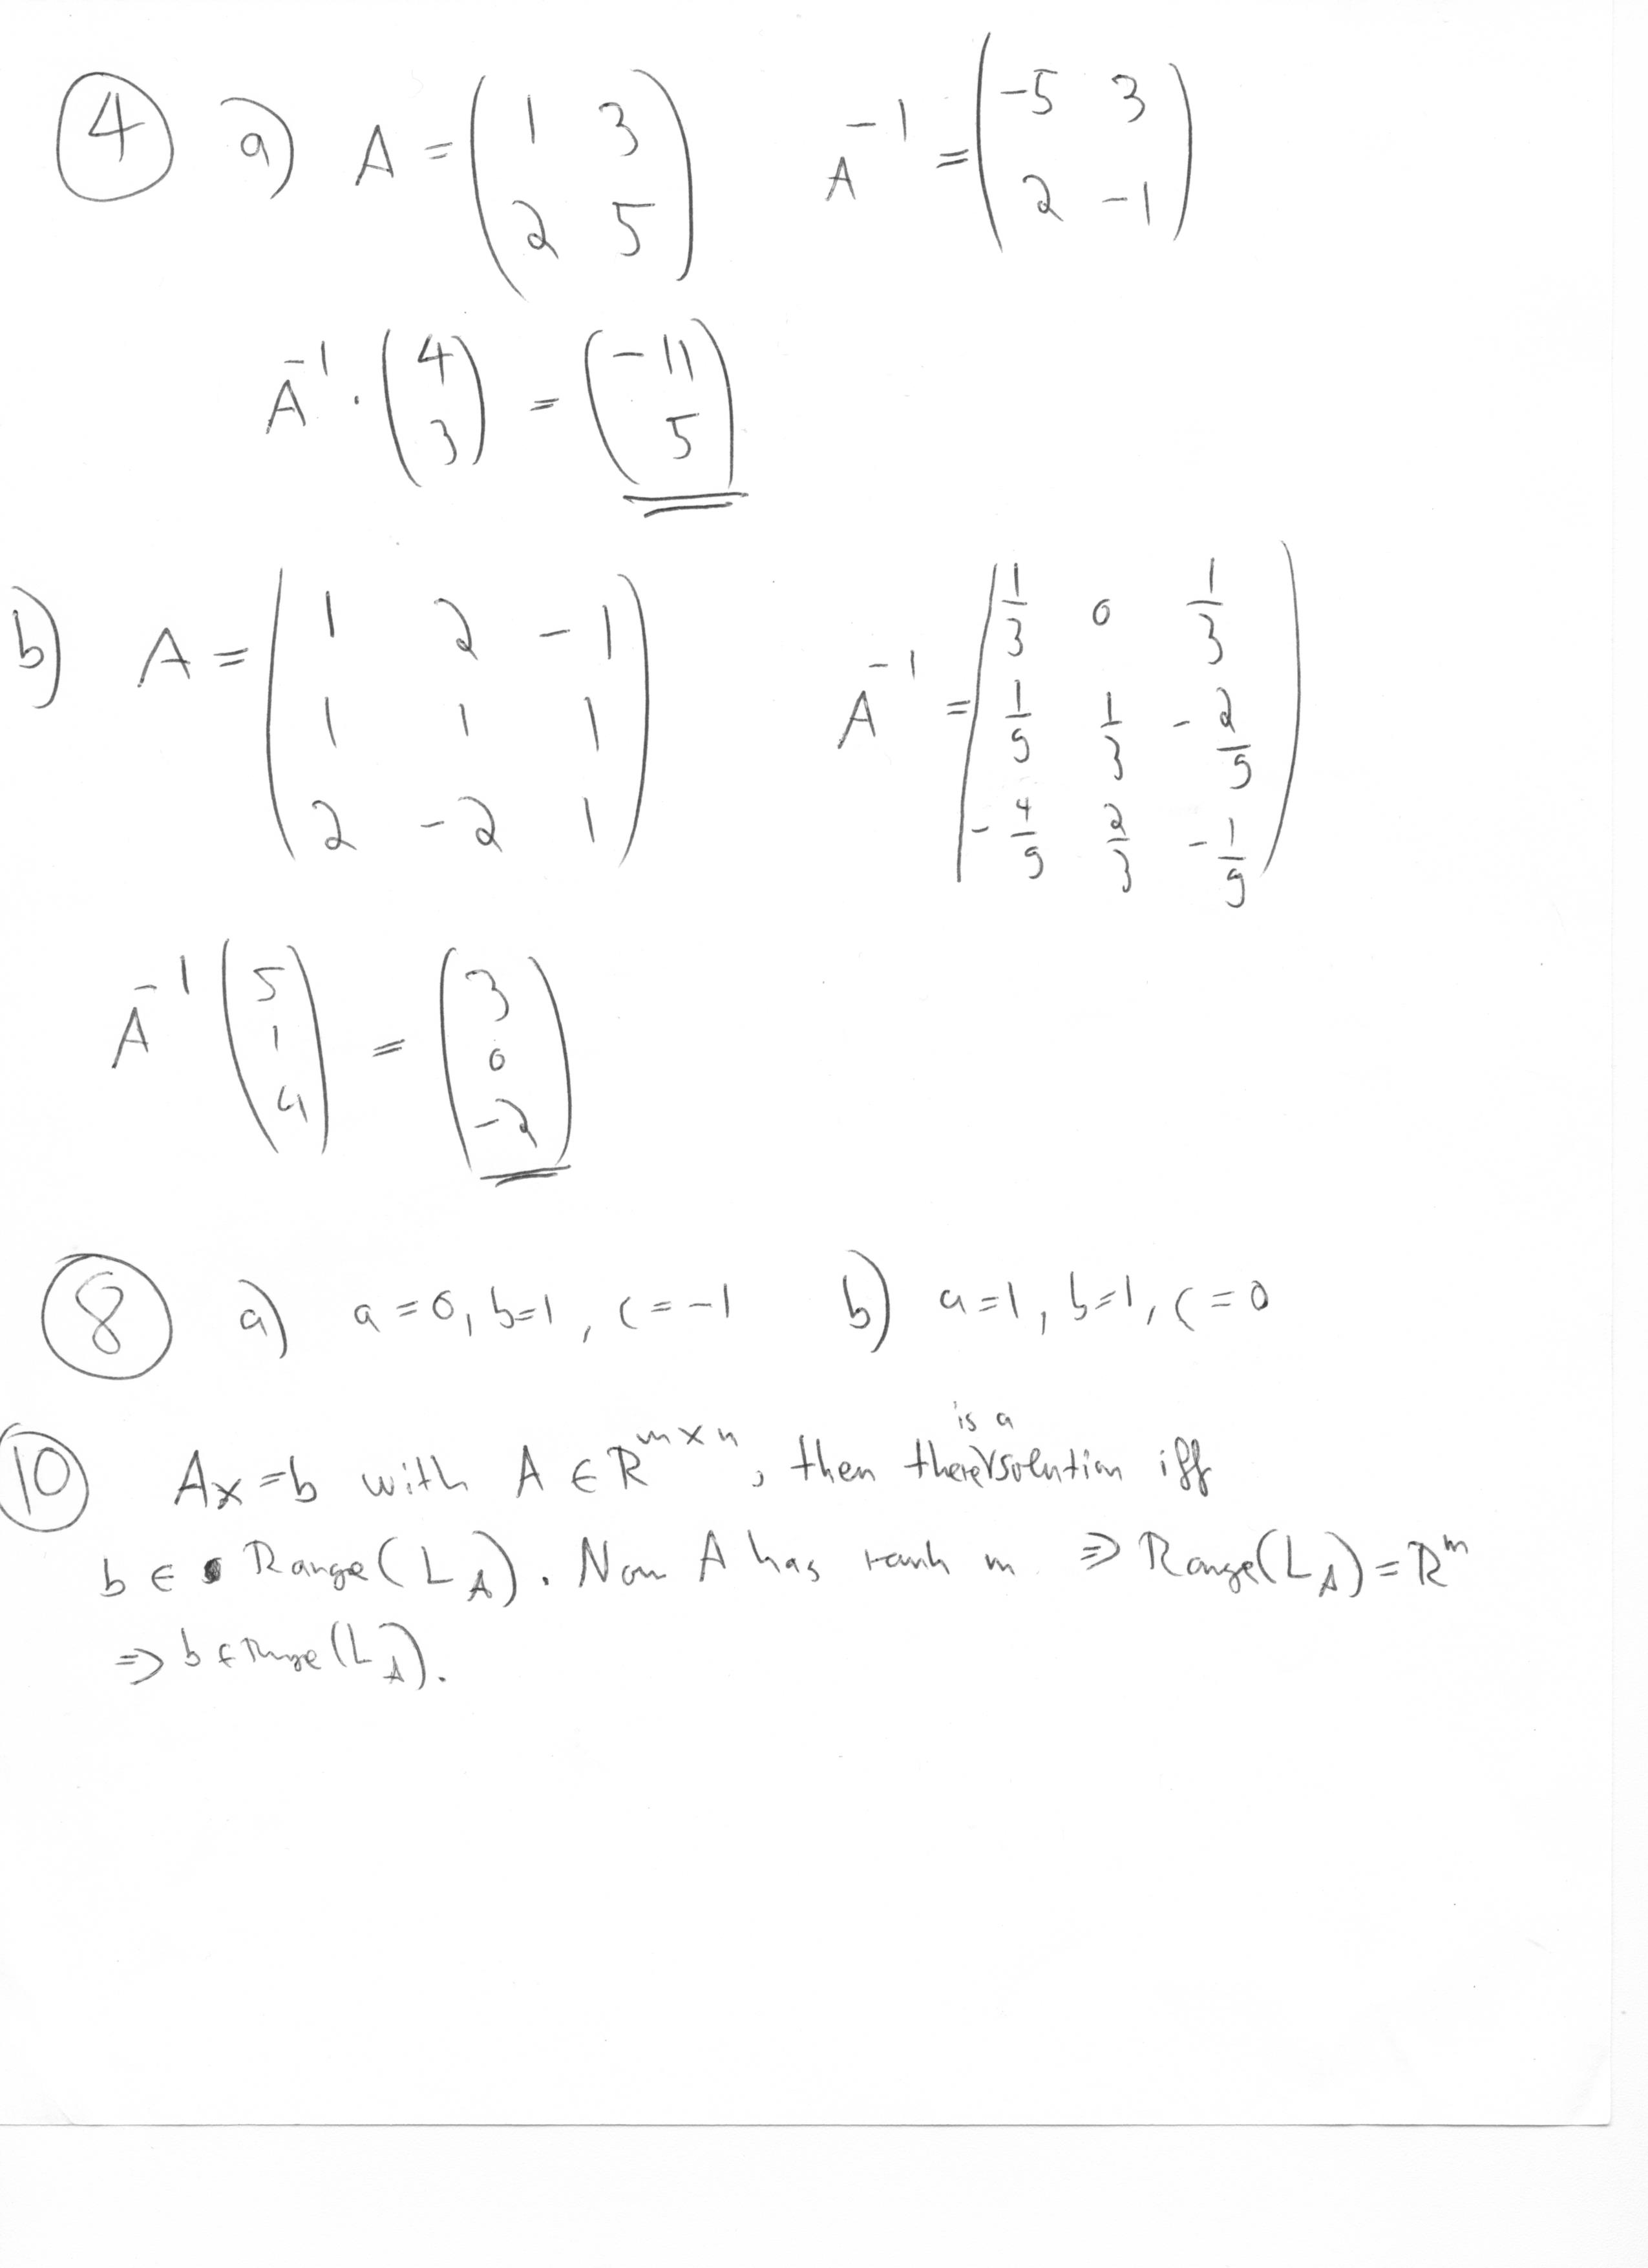 4 a) A = ( 1 3 ; 2 5 ) A^{-1} = ( -5 3 ; 2 -1 )
A^{-1} · ( 4 ; 3 ) = ( -11 ; 5 )
b) A = ( 1 2 -1 ; 1 1 1 ; 2 -2 1 ) A^{-1} = ( 1/3 0 1/3 ; 1/9 1/3 -2/9 ; -4/9 2/3 -1/9 )
A^{-1} ( 5 ; 1 ; 4 ) = ( 3 ; 0 ; -2 )
8 a) a=0, b=1, c=-1 b) a=1, b=1, c=0
10 Ax=b with A ∈ R^{m×n}, then there is a solution iff
b ∈ Range(L_A). Now A has rank m ⇒ Range(L_A) = R^m
⇒ b ∈ Range(L_A).